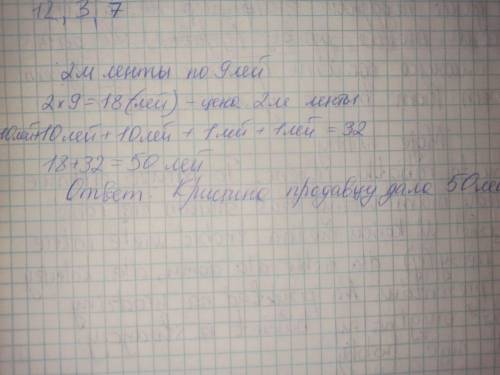 12, 3, 7
2м ленты по 9 лей
2×9=18 (лей) - цена 2м ленты
10лей+10лей + 10лей + 1лей + 1лей = 32
18+32=50 лей
Ответ. Кристина продавцу дала 50 лей